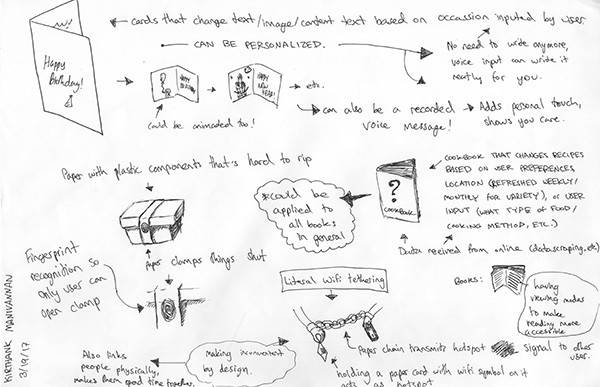 cards that change text/image/content text based on occassion inputed by user
CAN BE PERSONALIZED.
Happy
Birthday!
No need to write anymore,
voice input can write it
neatly for you.
etc.
could be animated too!
can also be a recorded
voice message!
Adds personal touch,
shows you care.
Paper with plastic components that's hard to rip
*could be
applied to
all books
in general
?
COOKBOOK
COOKBOOK THAT CHANGES RECIPES
BASED ON USER PREFERENCES,
LOCATION (REFRESHED WEEKLY/
MONTHLY FOR VARIETY), or USER
INPUT (WHAT TYPE OF FOOD/
COOKING METHOD, ETC.)
Data received from online (datascraping, etc)
Paper clamps things shut
Fingerprint
recognition so
only user can
open clamp
Literal Wifi tethering
Books:
having
viewing modes
to make
reading more
accessible
Paper chain transmits hotspot
signal to other
users.
Also links
people physically,
makes them spend time together.
making inconvenient
by design.
holding a paper card with wifi symbol on it
acts as hotspot
KIRTHANK MANIVANNAN
3/19/17